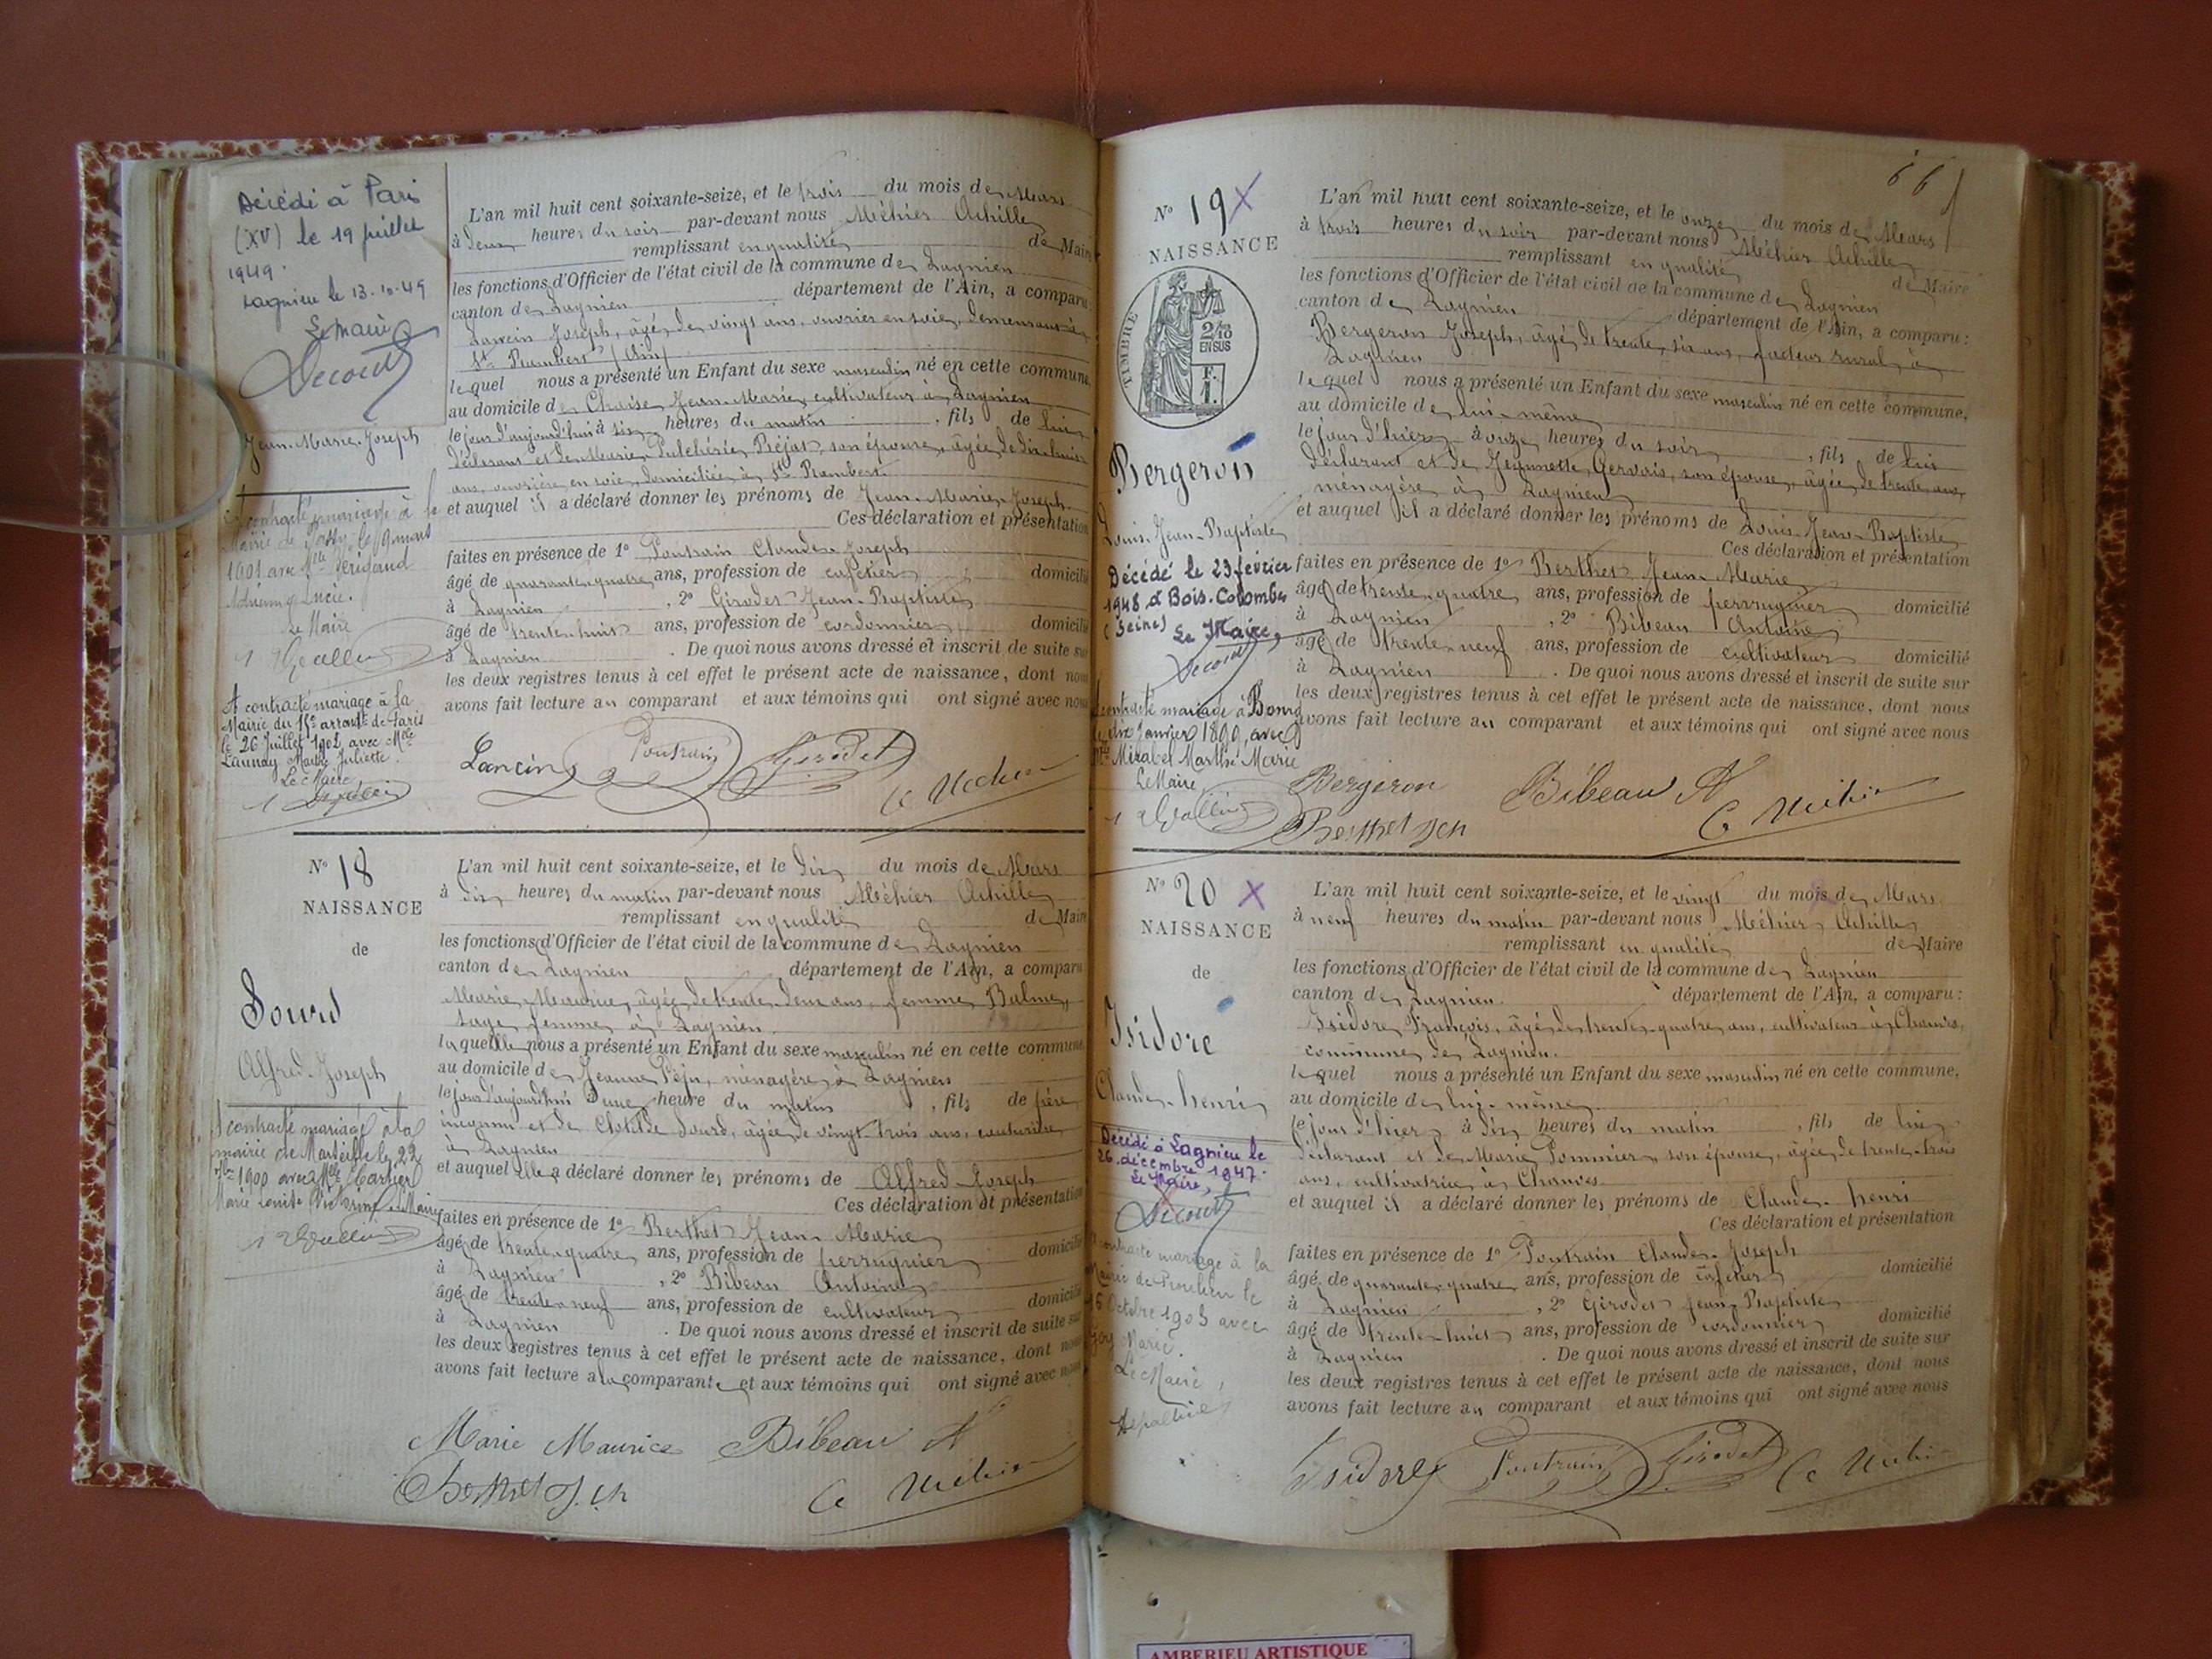 Décédé à Paris
(XV) le 19 juillet
1949.
Lagnieu le 13.10.49
Le Maire
Decourt
Jean-Marie-Joseph
A contracté mariage à la
Mairie de
1901 avec Mlle
Lucie.
Le Maire
A contracté mariage à la
Mairie du 15e arrondt de Paris
le 26 Juillet 1902 avec Mlle
Launay Marthe Juliette.
Le Maire
L'an mil huit cent soixante-seize, et le trois du mois de Mars
à deux heures du soir par-devant nous Méhier Achille
remplissant en qualité de Maire
les fonctions d'Officier de l'état civil de la commune de Lagnieu
canton de Lagnieu département de l'Ain, a comparu
Joseph, âgé de vingt ans, ouvrier en soie, demeurant à
St Rambert (Ain)
lequel nous a présenté un Enfant du sexe masculin né en cette commune,
au domicile de Chaise Jean-Marie, cultivateur à Lagnieu
le jour d'aujourd'hui à six heures du matin, fils de lui
déclarant et de Marie Pulchérie Préjat, son épouse, âgée de dix-huit
ans, ouvrière en soie, domiciliée à St Rambert.
et auquel il a déclaré donner les prénoms de Jean-Marie-Joseph.
Ces déclaration et présentation
faites en présence de 1° Poutrain Claude-Joseph
âgé de quarante-quatre ans, profession de cafetier domicilié
à Lagnieu, 2° Girodet Jean-Baptiste
âgé de trente-huit ans, profession de cordonnier domicilié
à Lagnieu. De quoi nous avons dressé et inscrit de suite sur
les deux registres tenus à cet effet le présent acte de naissance, dont nous
avons fait lecture au comparant et aux témoins qui ont signé avec nous
Lancin Poutrain Girodet A Méhier
N° 18
NAISSANCE
de
Sourd
Alfred-Joseph
A contracté mariage à la
mairie de Marseille le 22
1900 avec Mlle Cartier
Marie Louise Le Maire
L'an mil huit cent soixante-seize, et le dix du mois de Mars
à dix heures du matin par-devant nous Méhier Achille
remplissant en qualité de Maire
les fonctions d'Officier de l'état civil de la commune de Lagnieu
canton de Lagnieu département de l'Ain, a comparu
Marie Maurice, âgée de trente-deux ans, femme Balme,
sage femme à Lagnieu.
laquelle nous a présenté un Enfant du sexe masculin né en cette commune,
au domicile de Jeanne Péju, ménagère à Lagnieu
le jour d'aujourd'hui à une heure du matin, fils de père
inconnu et de Clotilde Sourd, âgée de vingt-trois ans, couturière
à Lagnieu
et auquel elle a déclaré donner les prénoms de Alfred-Joseph
Ces déclaration et présentation
faites en présence de 1° Berthet Jean-Marie
âgé de trente-quatre ans, profession de perruquier domicilié
à Lagnieu, 2° Bibeau Antoine
âgé de trente-neuf ans, profession de cultivateur domicilié
à Lagnieu. De quoi nous avons dressé et inscrit de suite sur
les deux registres tenus à cet effet le présent acte de naissance, dont nous
avons fait lecture à la comparante et aux témoins qui ont signé avec nous
Marie Maurice Bibeau A
Berthet J. A Méhier
66
N° 19 X
NAISSANCE
TIMBRE
2/10
EN SUS
F.
1.
Bergeron
Louis-Jean-Baptiste
Décédé le 23 février
1948 à Bois-Colombes
(Seine)
Le Maire,
Decourt
A contracté mariage à Bourg
le dix Janvier 1899 avec
Mlle Mirabel Marthe Marie
Le Maire
L'an mil huit cent soixante-seize, et le onze du mois de Mars
à trois heures du soir par-devant nous Méhier Achille
remplissant en qualité de Maire
les fonctions d'Officier de l'état civil de la commune de Lagnieu
canton de Lagnieu département de l'Ain, a comparu :
Bergeron Joseph, âgé de trente-six ans, facteur rural, à
Lagnieu
lequel nous a présenté un Enfant du sexe masculin né en cette commune,
au domicile de lui-même
le jour d'hier à onze heures du soir, fils de lui
déclarant et de Jeannette Gervais, son épouse, âgée de trente ans,
ménagère à Lagnieu
et auquel il a déclaré donner les prénoms de Louis-Jean-Baptiste
Ces déclaration et présentation
faites en présence de 1° Berthet Jean-Marie
âgé de trente-quatre ans, profession de perruquier domicilié
à Lagnieu, 2° Bibeau Antoine
âgé de trente-neuf ans, profession de cultivateur domicilié
à Lagnieu. De quoi nous avons dressé et inscrit de suite sur
les deux registres tenus à cet effet le présent acte de naissance, dont nous
avons fait lecture au comparant et aux témoins qui ont signé avec nous
Bergeron Bibeau A
Berthet A Méhier
N° 20 X
NAISSANCE
de
Isidore
Claude-henri
Décédé à Lagnieu le
26 décembre 1947.
Le Maire,
Decourt
A contracté mariage à la
Mairie de le
Octobre 1903 avec
Marie.
Le Maire,
L'an mil huit cent soixante-seize, et le vingt du mois de Mars
à neuf heures du matin par-devant nous Méhier Achille
remplissant en qualité de Maire
les fonctions d'Officier de l'état civil de la commune de Lagnieu
canton de Lagnieu. département de l'Ain, a comparu :
Isidore François, âgé de trente-quatre ans, cultivateur à Chanves,
commune de Lagnieu.
lequel nous a présenté un Enfant du sexe masculin né en cette commune,
au domicile de lui-même.
le jour d'hier à dix heures du matin, fils de lui
déclarant et de Marie Pommier son épouse, âgée de trente-trois
ans, cultivatrice à Chanves
et auquel il a déclaré donner les prénoms de Claude-henri
Ces déclaration et présentation
faites en présence de 1° Poutrain Claude-Joseph
âgé de quarante-quatre ans, profession de cafetier domicilié
à Lagnieu, 2° Girodet Jean-Baptiste
âgé de trente-huit ans, profession de cordonnier domicilié
à Lagnieu. De quoi nous avons dressé et inscrit de suite sur
les deux registres tenus à cet effet le présent acte de naissance, dont nous
avons fait lecture au comparant et aux témoins qui ont signé avec nous
Isidore Poutrain Girodet A Méhier
AMBERIEU ARTISTIQUE